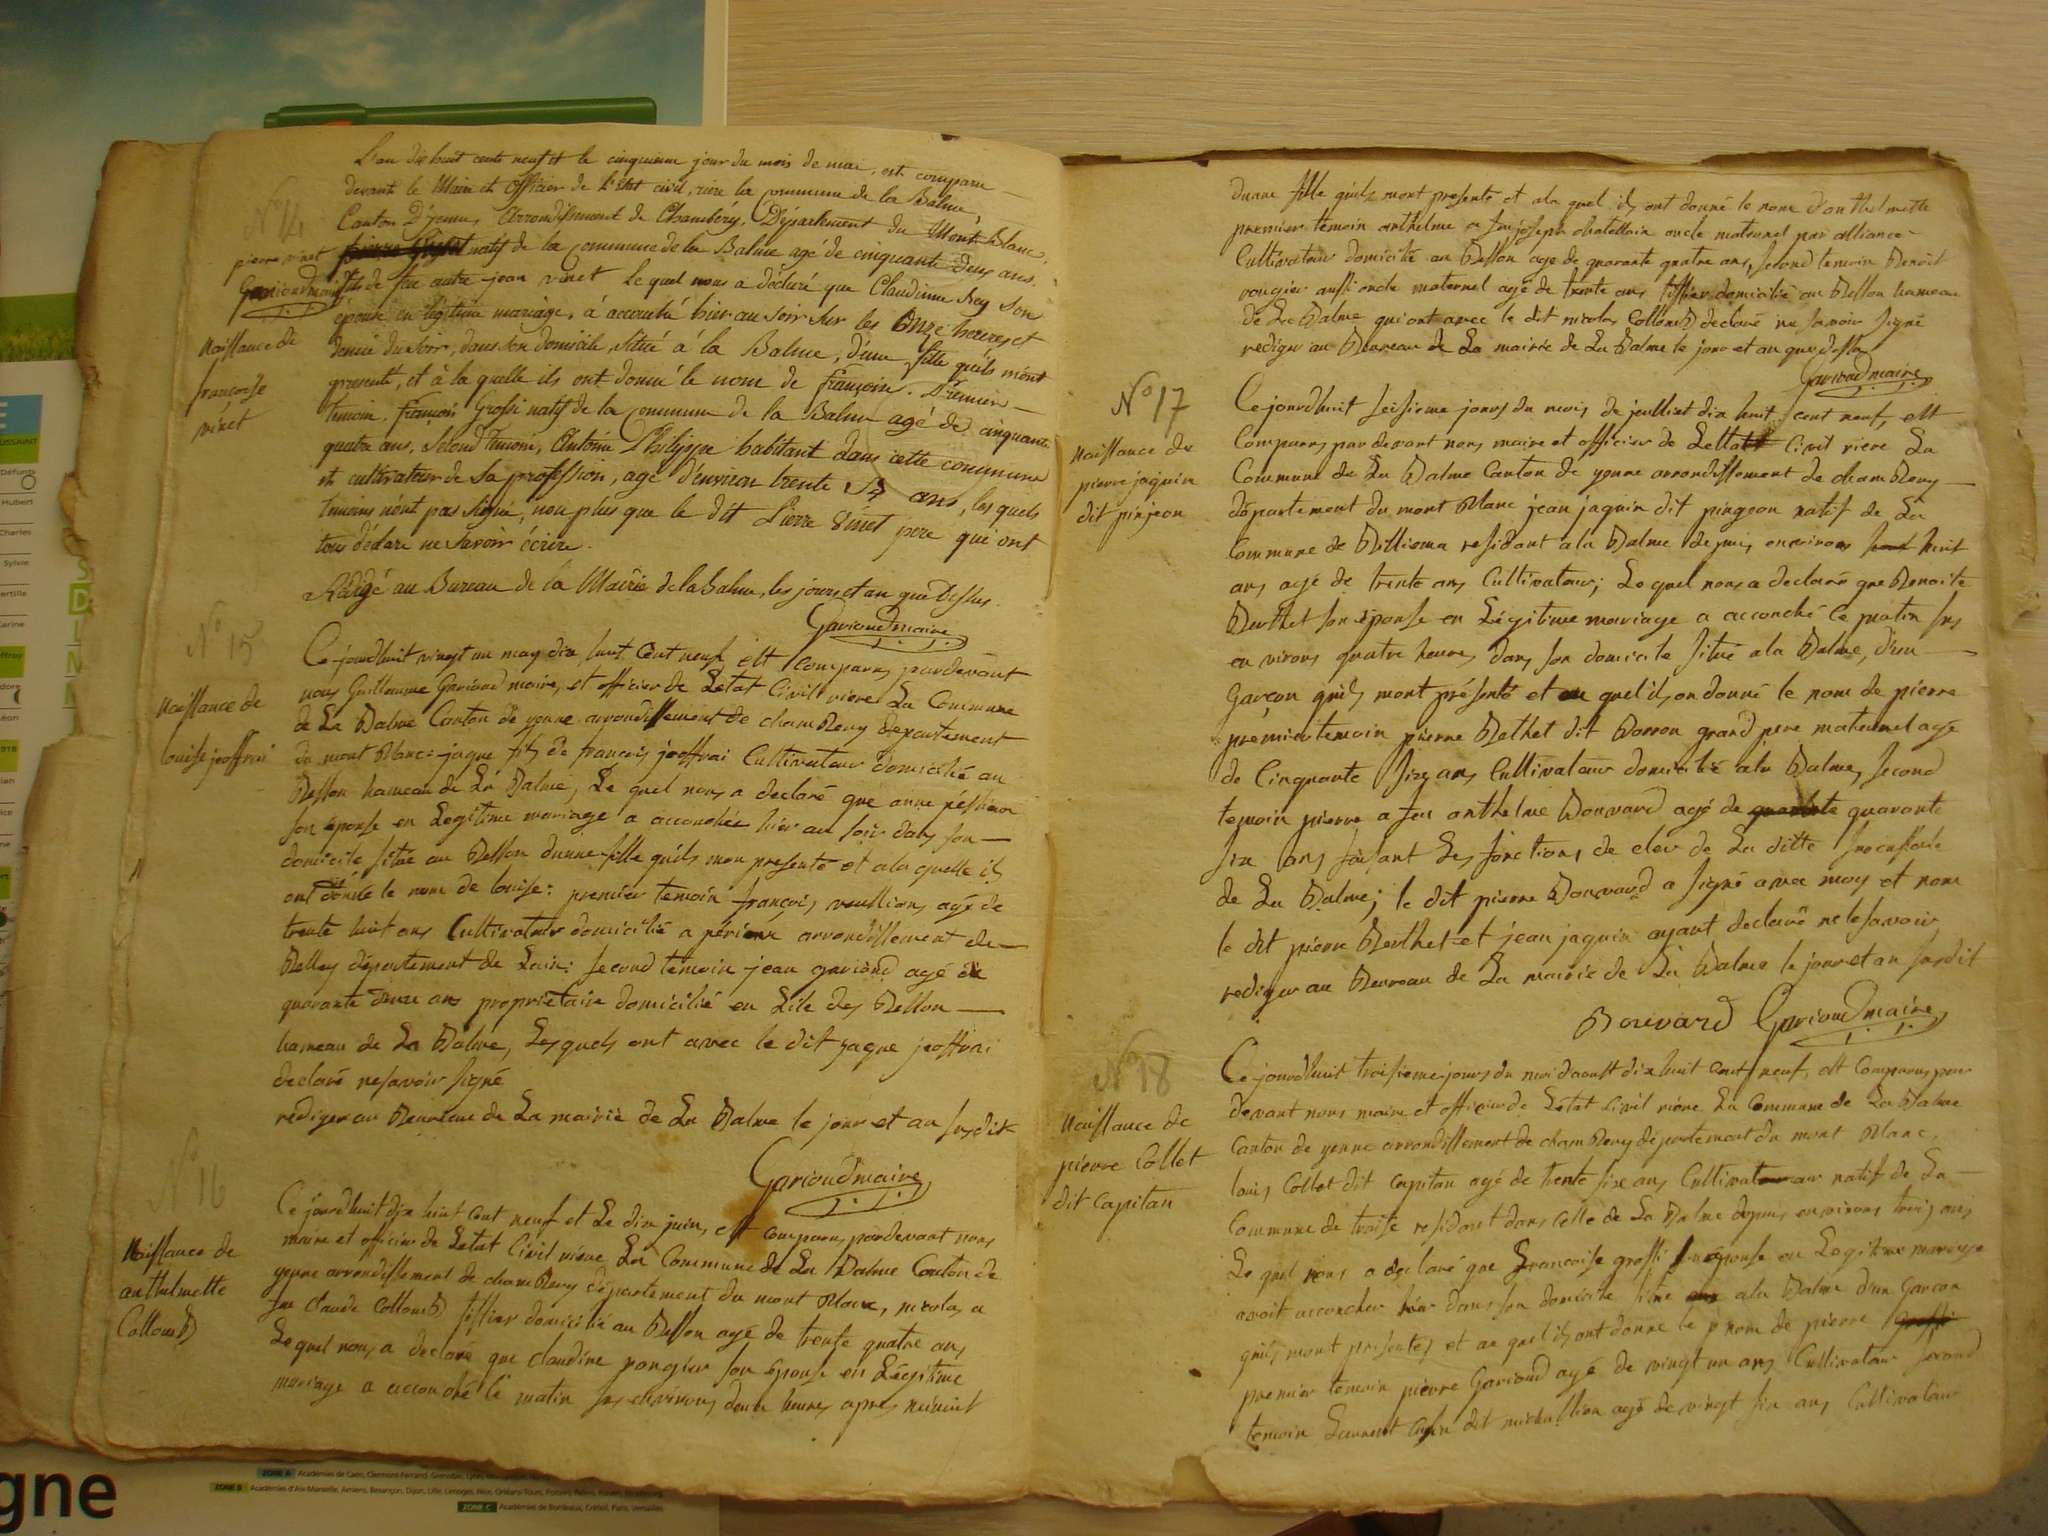 L'an dix huit cents neuf et le cinquieme jour du mois de mai, est comparu
devant le Maire et officier de l'état civil, riere la commune de la Balme,
Canton D'yenne, Arrondissement de Chambéry, Département du Mont Blanc,
natif de la Commune de la Balme agé de cinquante deux ans,
fils de feu autre jean vinet le quel nous a déclaré que Claudine Rey son
épouse en légitime mariage, à accouché hier au soir sur les Onze heures et
demie du soir, dans son domicile, situé à la Balme, d'une fille qu'ils m'ont
presenté, et à la quelle ils ont donné le nom de françoise. Premier
temoin. françois Grossi natif de la Commune de la Balme agé de cinquante
quatre ans, second temoin, Antoine Philippe habitant dans cette commune
et cultivateur de sa profession, agé d'environ trente ans, les quels
temoins n'ont pas signé, non plus que le dit Pierre Vinet pere qui ont
tous déclaré ne savoir écrire.
Rédigé au Bureau de la Mairie de la Balme, les jour et an que Dessus.
Garioud maire
N° 14
pierre vinet
Garioud maire
Naissance de
françoise
vinet
Ce jourdhuit vingt un may dix huit Cent neuf est Comparus pardevant
nous Guillaume Garioud maire, et officier de Letat Civil riere La Commune
de La Balme Canton de yenne arrondissement de chamBery departement
du mont Blanc jaque fils de francois jeoffrai Cultivateur domicilié au
Besson hameau de La Balme, Le quel nous a declaré que anne
son éponse en Legitime mariage a accouchée hier au soir dans son
domicile situé au Besson dunne fille quils mon presenté et ala quelle ils
ont donné le nom de louise: premier temoin françois vuullions agé de
trente huit ans Cultivateur domicilié a arrondissement de
Belley département de Lain: second temoin jean garioud agé de
quarante ans proprietaire domicilié en Lile des Besson
hameau de La Balme, Lesquels ont avec le dit jaque jeoffrai
declaré ne savoir signé
rediger au Beureau de La mairie de La Balme le jour et an susdit
Garioud maire
N° 15
Naissance de
louise jeoffrai
Ce jourdhuit dix huit Cent neuf et Le dix juin, est Comparus pardevant nous
maire et officier de Letat Civil riere La Commune de La Balme Canton de
yenne arrondissement de chamBery département du mont Blanc, nicolas a
feu claude CollomB tissier domicilié au Besson agé de trente quatre ans
Lequel nous a declaré que claudine son éponse en Légitime
mariage a accouché le matin sur environs deux heures apres minuit
N° 16
Naissance de
anthelmette
CollomB
dunne fille quils mont presenté et ala quel ils ont donné le nom d'anthelmette
premier temoin anthelme a feu joseph chatellain oncle maternel par alliance
Cultivateur domicilié au Besson age de quarante quatre ans, second temoin Benoit
aussi oncle maternel agé de trente ans tissier domicilié au Besson hameau
de La Balme qui ont avec le dit nicolas CollomB declaré ne savoir signé
rediger au Beureau de La mairie de La Balme le jour et an que dessu
Garioud maire
N° 17
Naissance de
pierre jaquin
dit pinjeon
Ce jourdhuit seisieme jours du mois de jeulliet dix huit cent neuf, est
Comparus par devant nous maire et officier de Lettat Civil riere La
Commune de La Balme Canton de yenne arrondissement de chamBery
département du mont Blanc jean jaquin dit pingeon natif de La
Commune de Billiema residant ala Balme depuis environs huit
ans agé de trente ans Cultivateur; Le quel nous a declaré que Benoite
Berthet son éponse en Légitime mariage a accouché le matin sur
en virons quatre heures dans son domicile situé ala Balme, d'un
Garçon quils mont présenté et au quel ils on donné le nom de pierre
premier temoin pierre Bethet dit Barron grand pere maternel age
de Cinquante sixe ans Cultivateur domicilié ala Balme, second
temoin pierre a feu anthelme Bouvard agé de quarante
six ans faisant Les fonctions de clerc de La ditte succursale
de La Balme; le dit pierre Bouvard a signé avec moy et nom
le dit pierre Berthet et jean jaquin ayant declaré ne le savoir
rediger au Beureau de La mairie de La Balme le jour et an susdit
Bouvard Garioud maire
N° 18
Naissance de
pierre Collet
dit Capitan
Ce jourdhuit troisieme jours du moi daoust dix huit Cent neuf, est Comparus par
devant nous maire et officier de Létat Civil riere La Commune de La Balme
Canton de yenne arrondissement de chamBery département du mont Blanc,
louis Collet dit Capitan agé de trente six ans Cultivateur natif de La
Commune de traise residant dans Celle de La Balme depuis environs trois ans
Le quel nous a declaré que francoise grossi son éponse en Legitime mariage
avoit accoucher hier dans son domicile situé ala Balme dun Garçon
quils mont présentés et au quel ils ont donné le nom de pierre
premier temoin pierre Garioud agé de vingt un ans Cultivateur second
temoin Laurent dit michallion agé de vingt six ans Cultivateur
gne
ZONE A Académies de Caen, Clermont-Ferrand, Grenoble,
ZONE B Académies d'Aix-Marseille, Amiens, Besançon, Dijon, Lille, Limoges, Nice, Orléans-Tours,
ZONE C Académies de Bordeaux, Créteil, Paris, Versailles